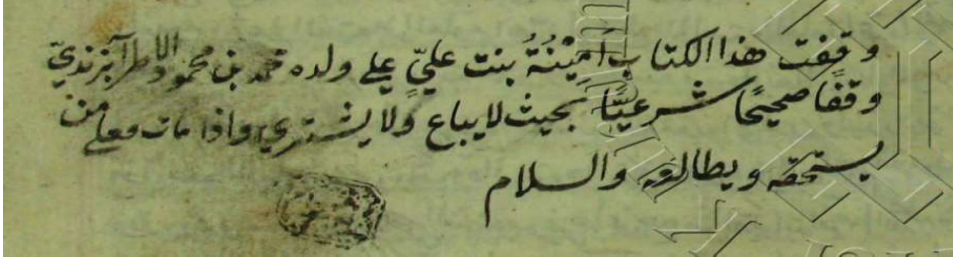 وقفت هذا الكتاب اَمِيْنَةُ بنت عليّ علے ولده محمد بن محمود الاطرابزندىّ
وقفًا صحيحًا شرعيّا بحيث لا يباع ولا يشترى واذا مات فعلے من
يستحقه ويطالعه والسلام